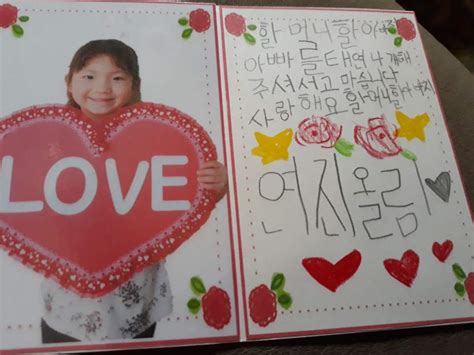 LOVE
할머니할아버지
아빠를태연나게해
주셔서고마습니다
사랑해요할머니할아버지
연지올림